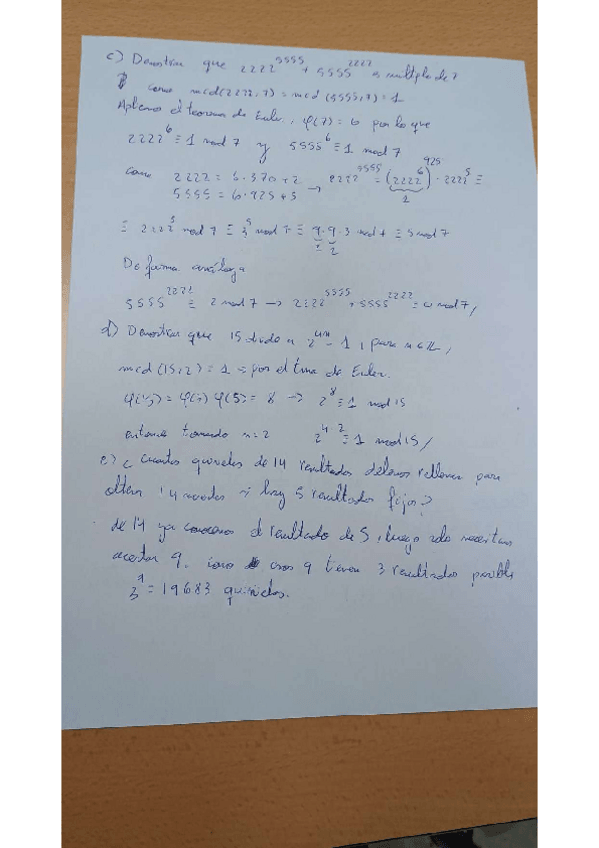 c) Demostrar que 2222^5555 + 5555^2222 es múltiplo de 7
como mcd(2222,7) = mcd(5555,7) = 1
Aplicamos el teorema de Euler, φ(7) = 6 por lo que
2222^6 ≡ 1 mod 7 y 5555^6 ≡ 1 mod 7
como 2222 = 6·370+2 → 2222^5555 = (2222^6)^925 · 2222^5 ≡
5555 = 6·925+5
≡ 2222^5 mod 7 ≡ 3^5 mod 7 ≡ 9·9·3 mod 7 ≡ 5 mod 7
De forma análoga
5555^2222 ≡ 2 mod 7 → 2222^5555 + 5555^2222 ≡ 0 mod 7
d) Demostrar que 15 divide a 2^4n - 1, para n∈ℤ
mcd(15,2) = 1 por el tma de Euler.
φ(15) = φ(3) φ(5) = 8 → 2^8 ≡ 1 mod 15
entonces tomando n=2 2^4^2 ≡ 1 mod 15
e) ¿ Cuantas quinielas de 14 resultados debemos rellenar para
obtener 14 aciertos si hay 5 resultados fijos?
de 14 ya conocemos el resultado de 5, luego solo necesitamos
acertar 9. como esos 9 tienen 3 resultados posibles
3^9 = 19683 quinielas.